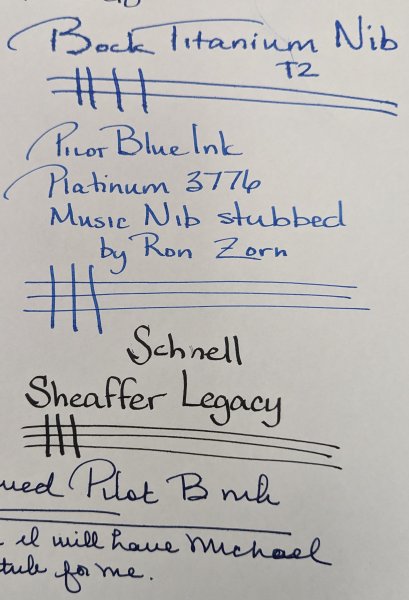 Bock Titanium Nib
T2
Pilot Blue Ink
Platinum 3776
Music Nib stubbed
by Ron Zorn
Schnell
Sheaffer Legacy
Pilot B
I will have Michael
for me.